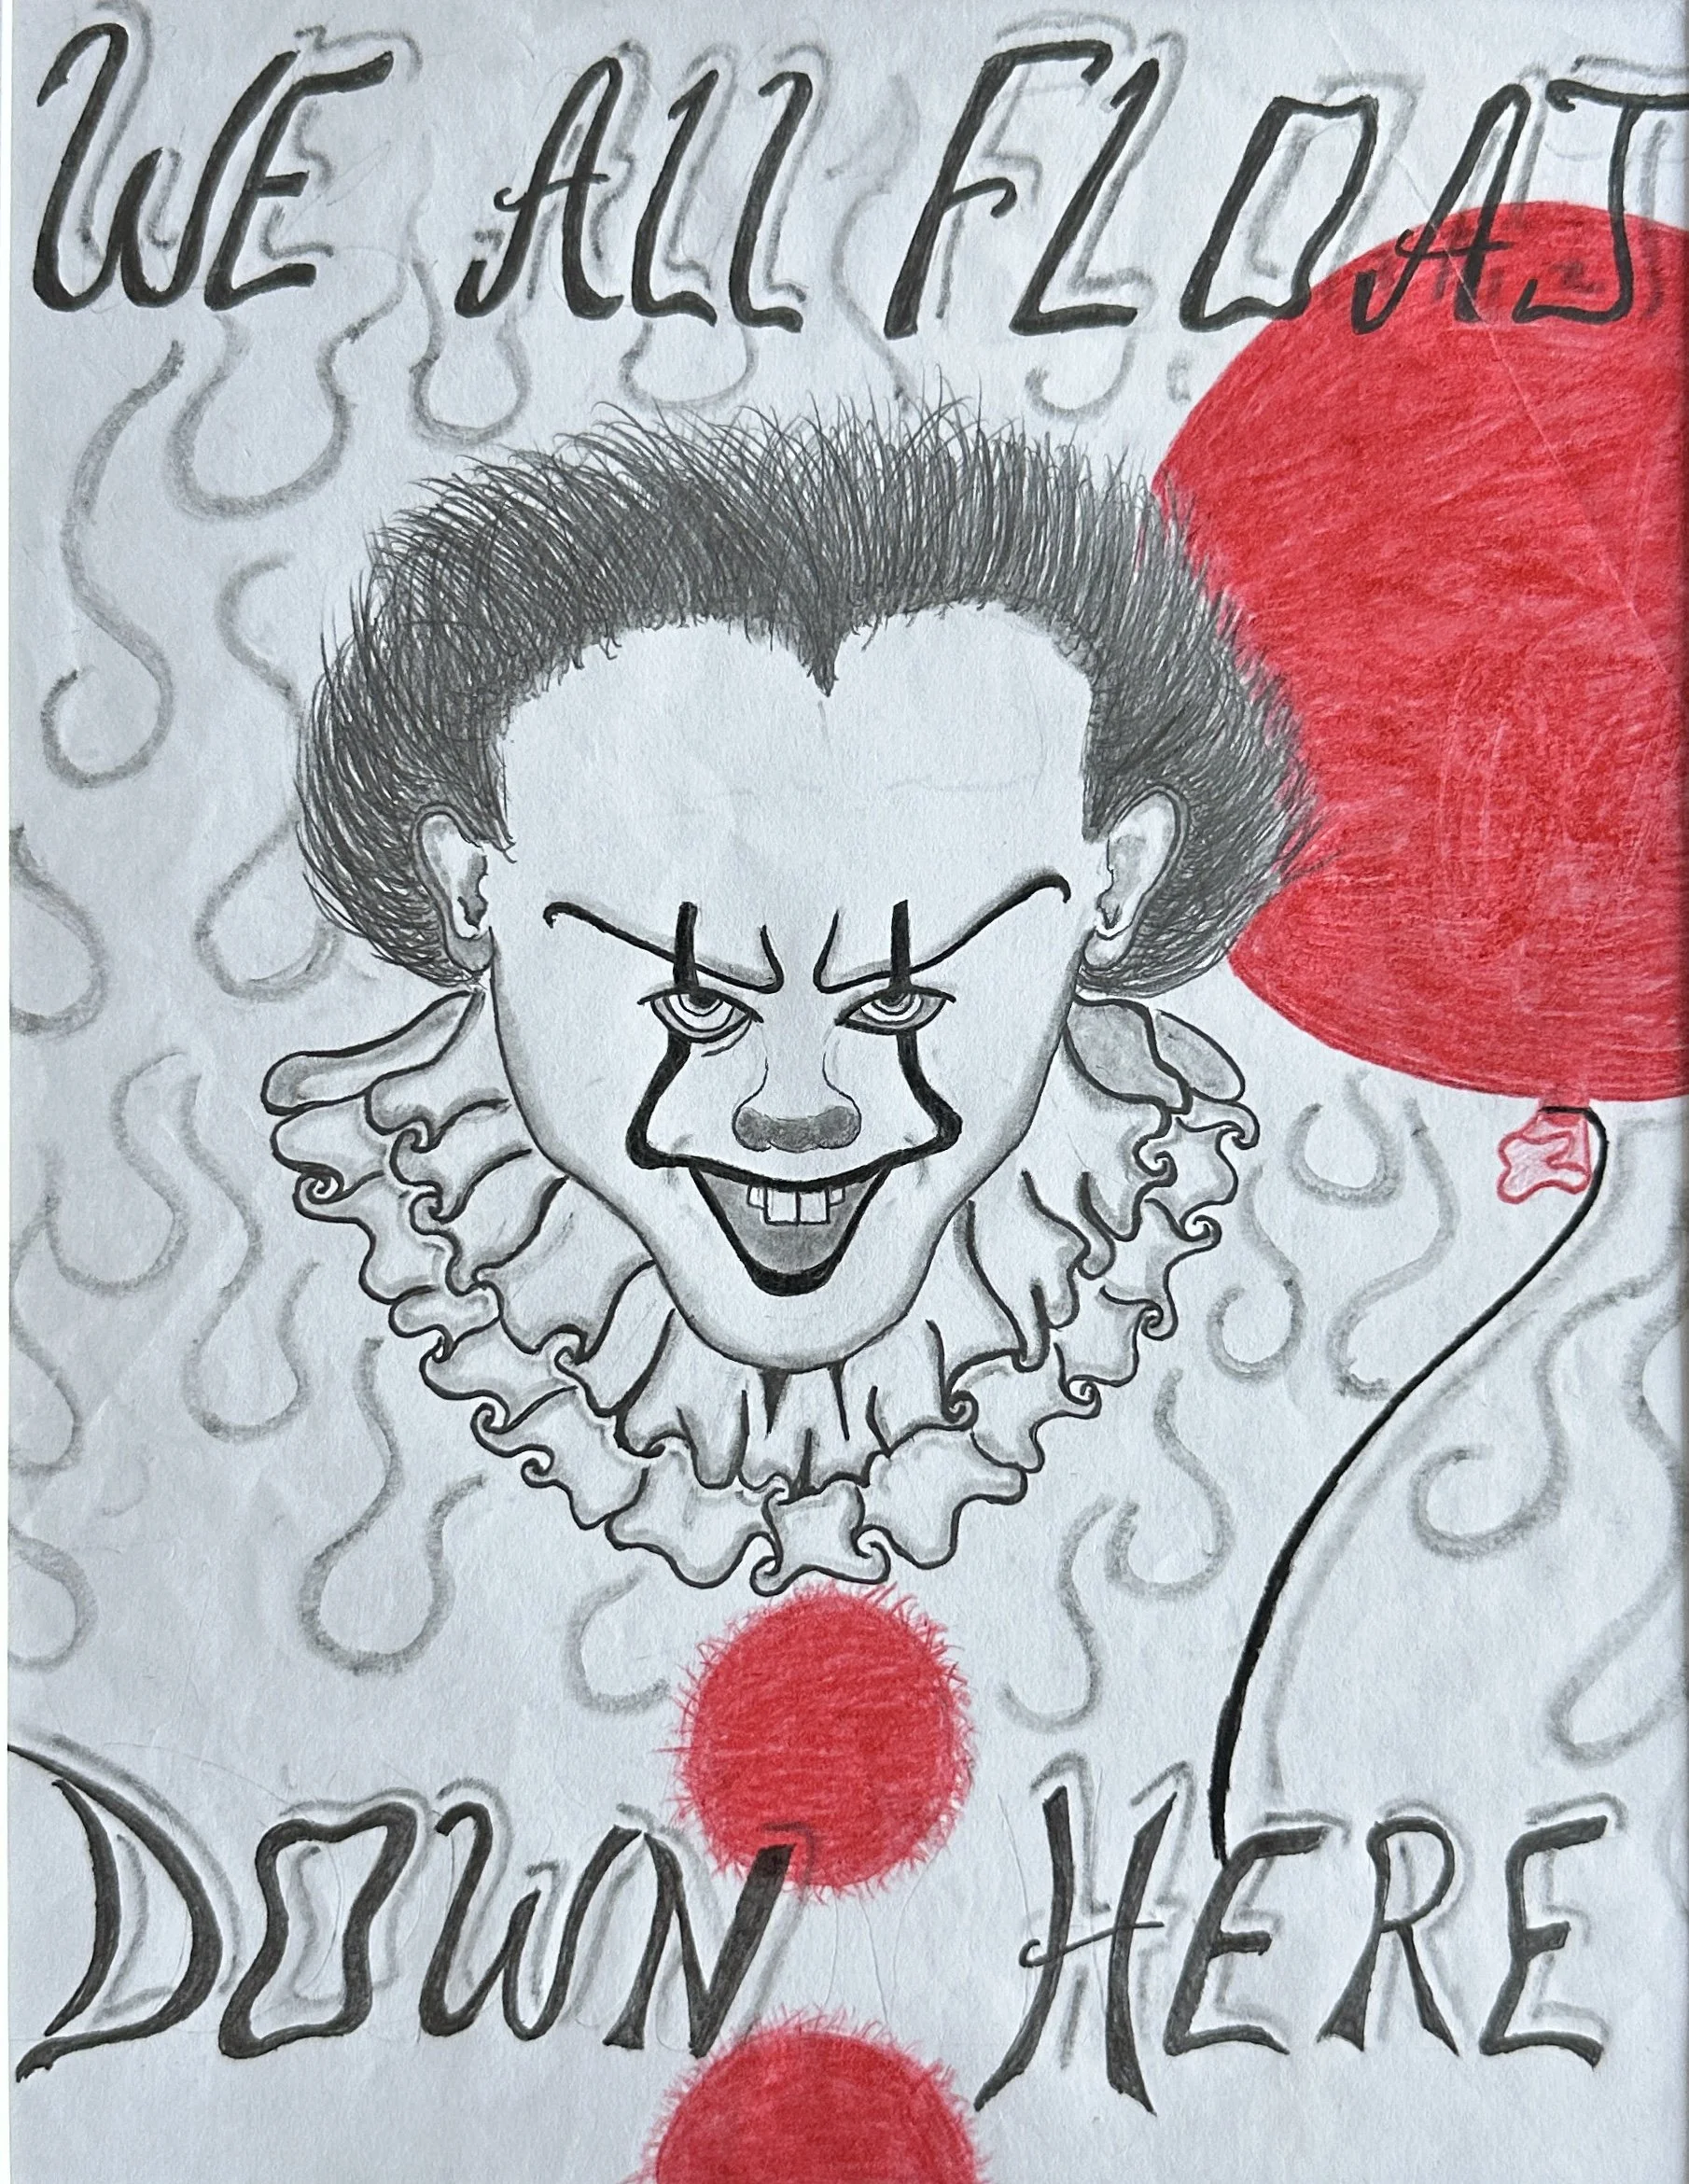 WE ALL FLOAT
DOWN HERE